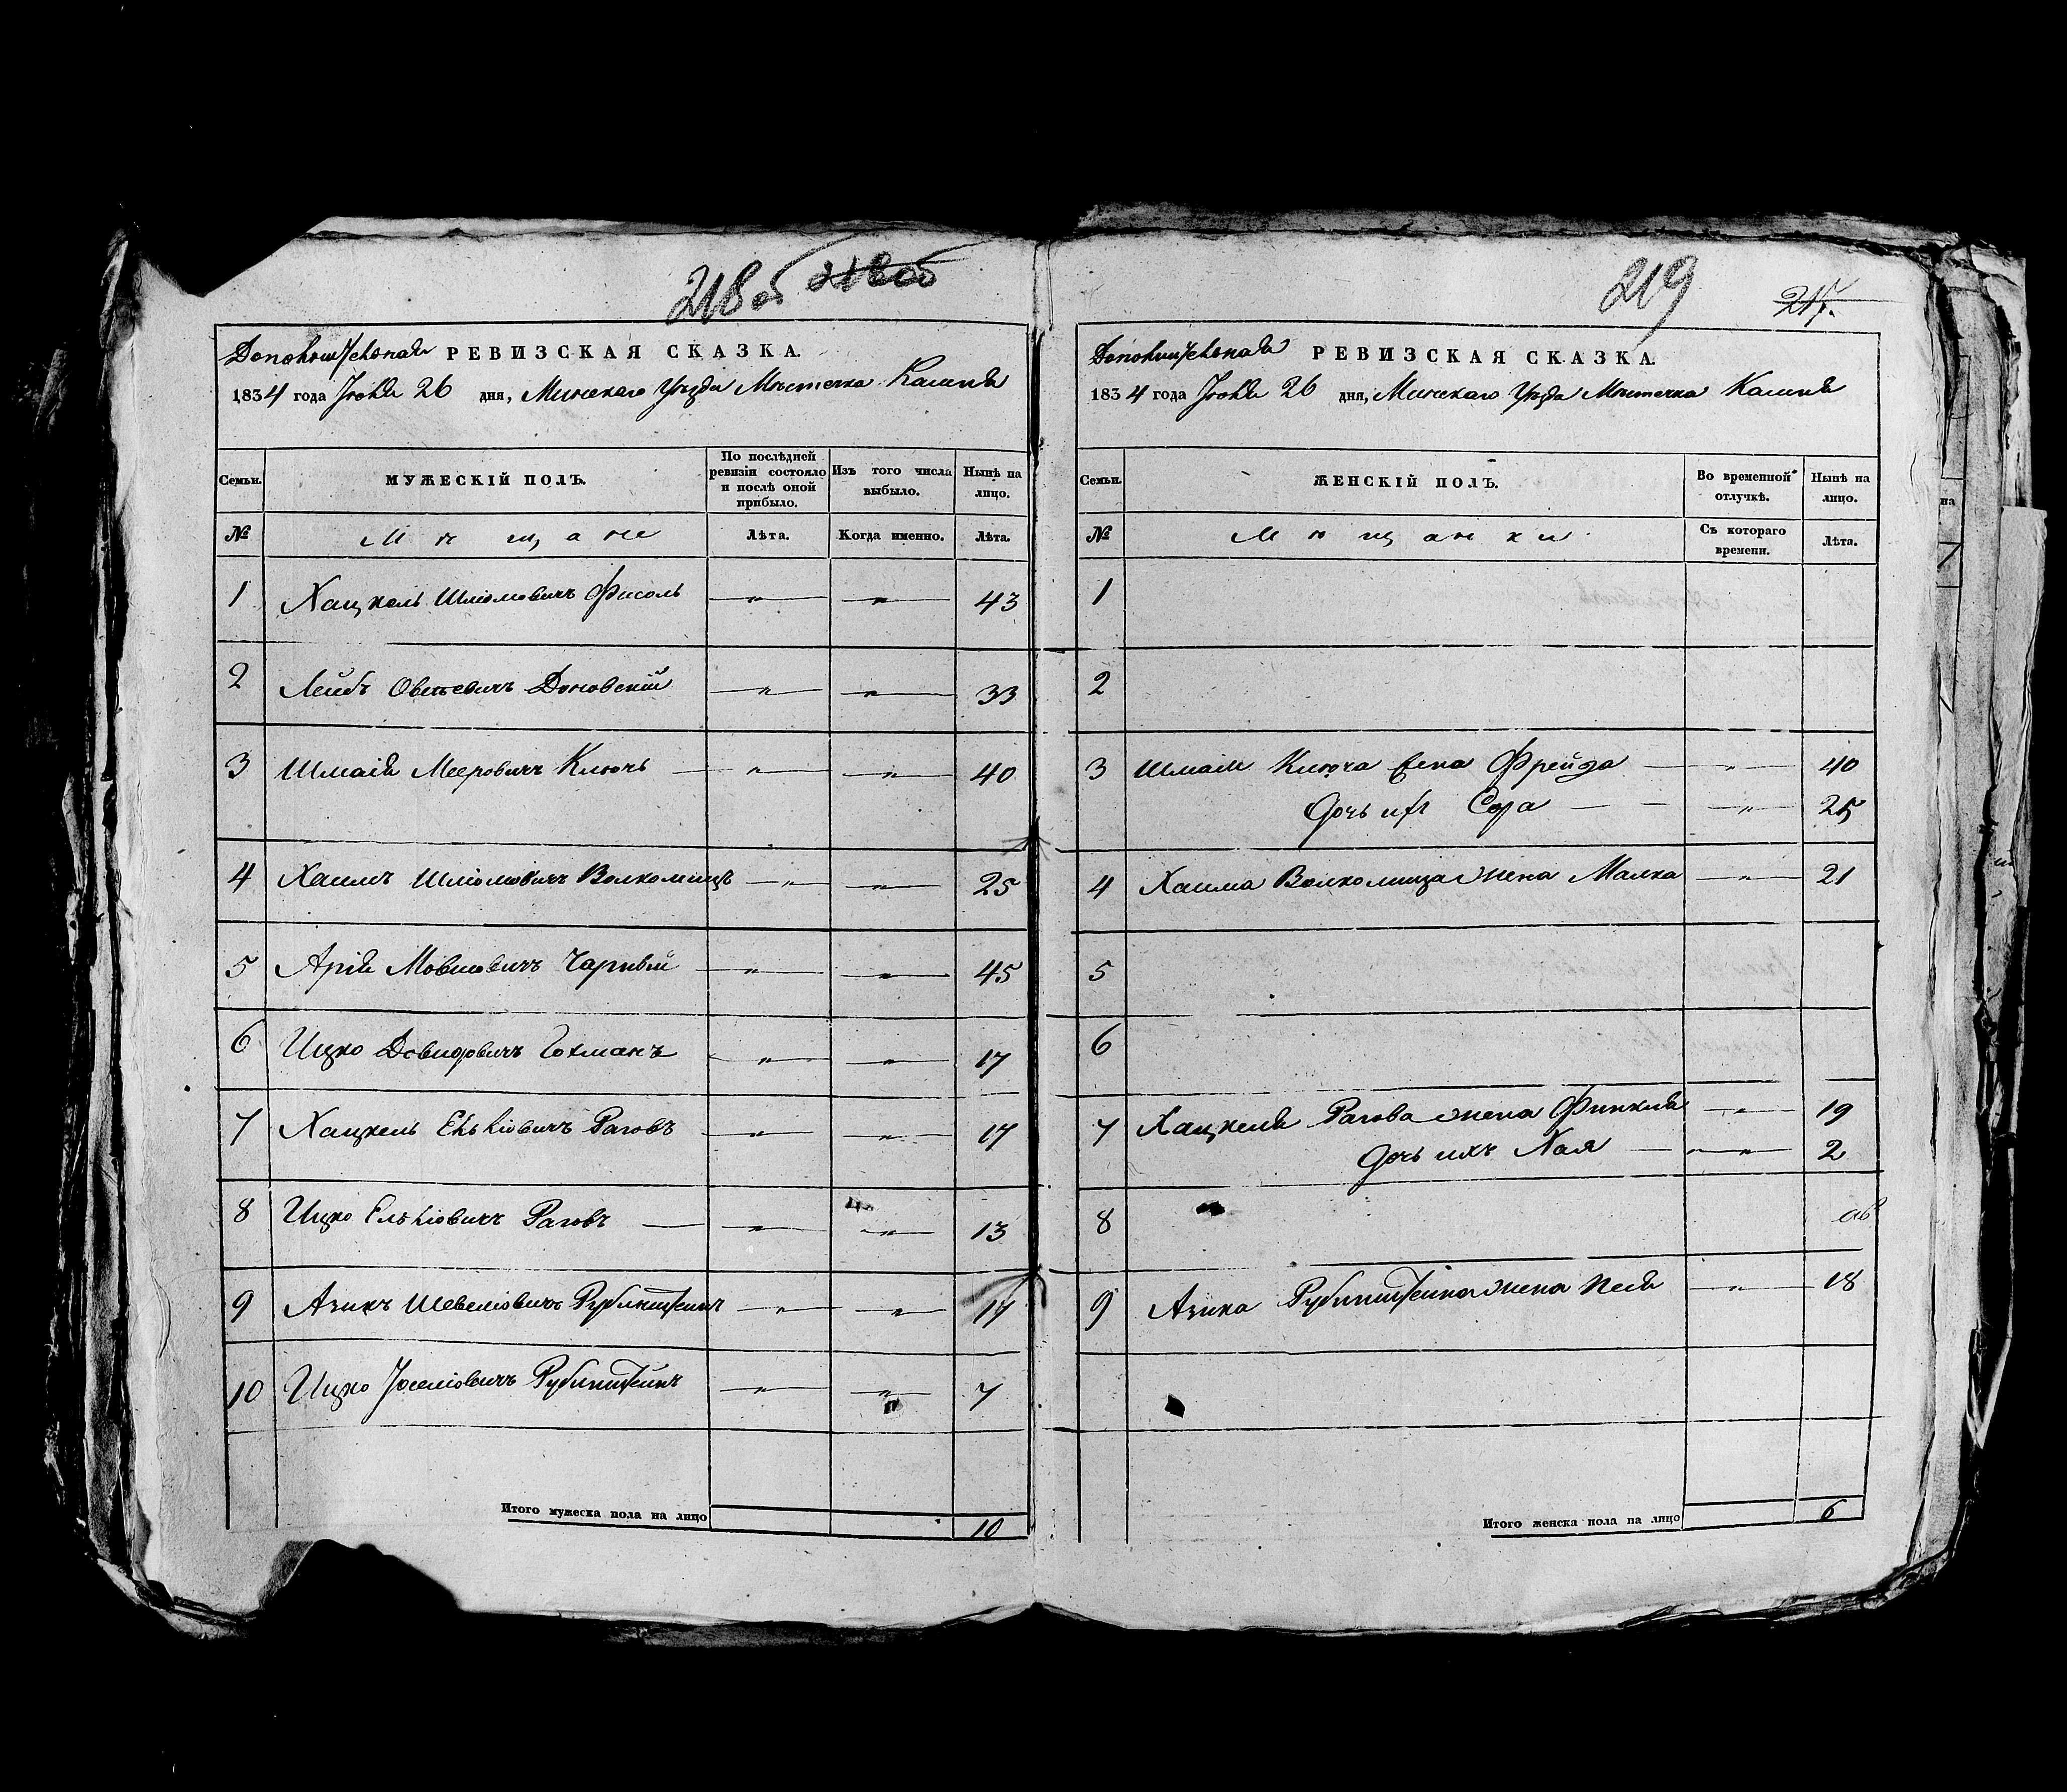 218об 218об
Дополнительная РЕВИЗСКАЯ СКАЗКА.
1834 года Іюля 26 дня, Минскаго Уѣзда Мѣстечка Каменя
Семьи.
МУЖЕСКІЙ ПОЛЪ.
По послѣдней ревизіи состояло и послѣ оной прибыло.
Изъ того числа выбыло.
Нынѣ на лицо.
№ Мѣщане Лѣта. Когда именно. Лѣта.
1 Хацкель Шліомовичъ Фисоль — „ — — „ — 43
2 Лейбъ Овсѣевичъ Доновскій — „ — — „ — 33
3 Шмаія Мееровичъ Ключъ — „ — — „ — 40
4 Хаимъ Шліомовичъ Волкомицъ — „ — — „ — 25
5 Арія Мовшовичъ Чарный — „ — — „ — 45
6 Ицко Довидовичъ Гохманъ — „ — — „ — 17
7 Хацкель Елькіовичъ Раговъ — „ — — „ — 17
8 Ицко Елькіовичъ Раговъ — „ — — „ — 13
9 Азикъ Шевеліовичъ Рубинштейнъ — „ — — „ — 17
10 Ицко Іоселіовичъ Рубинштейнъ — „ — — „ — 7
Итого мужеска пола на лицо 10
219
Дополнительная РЕВИЗСКАЯ СКАЗКА.
1834 года Іюля 26 дня, Минскаго Уѣзда Мѣстечка Каменя
Семьи.
ЖЕНСКІЙ ПОЛЪ.
Во временной отлучкѣ.
Нынѣ на лицо.
№ Мѣщанки Съ котораго времени. Лѣта.
1
2
3 Шмаи Ключа жена Фрейда — „ — 40
Дочь ихъ Сора — „ — 25
4 Хаима Волкомица жена Малка — „ — 21
5
6
7 Хацкеля Рагова жена Финкля — „ — 19
Дочь ихъ Хая — „ — 2
8
9 Азика Рубинштейна жена Песя — „ — 18
Итого женска пола на лицо 6